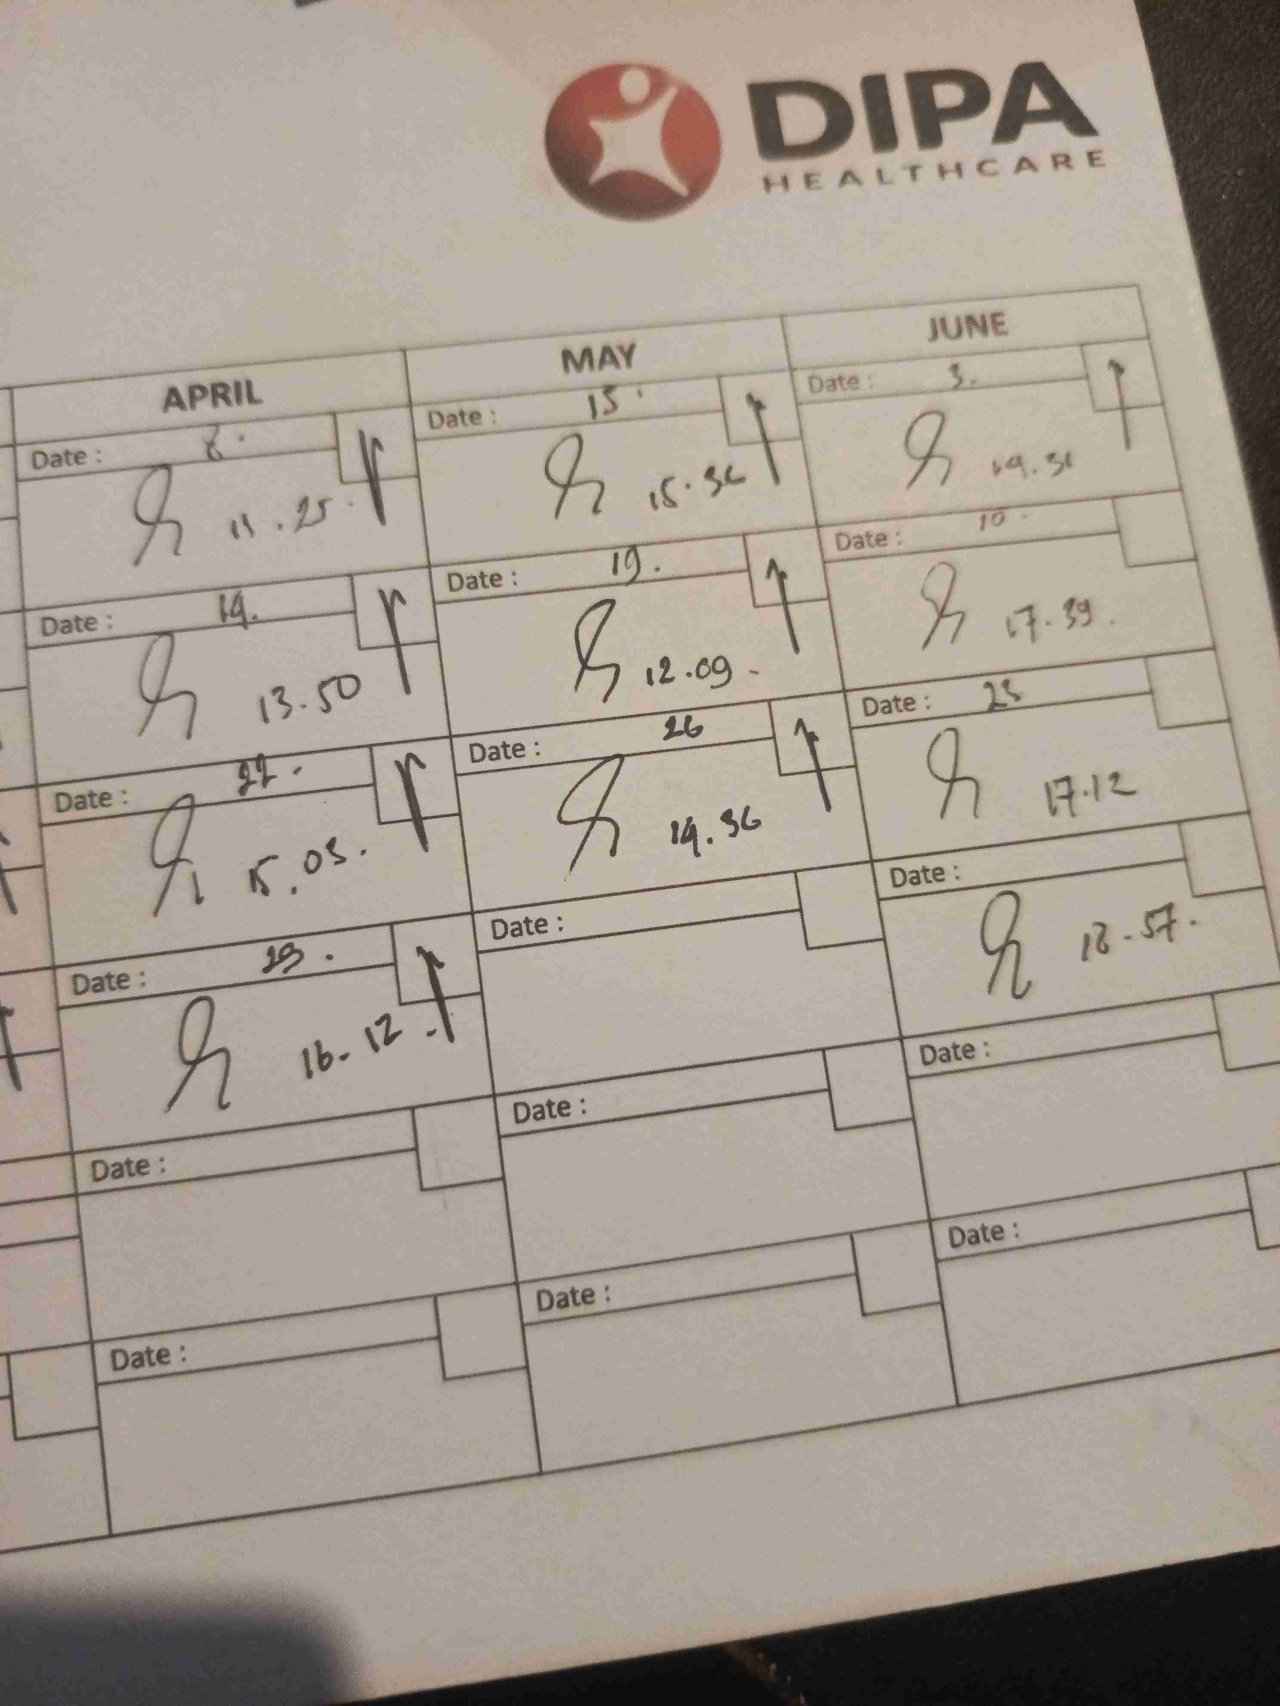 DIPA
HEALTHCARE
APRIL
MAY
JUNE
Date : 8.
11.25
Date : 15.
15.36
Date : 3.
Date : 14.
13.50
Date : 19.
12.09
Date : 10
17.39.
Date : 22.
15.03.
Date : 26
14.36
Date : 23
17.12
Date :
16.12
Date :
Date :
18.57.
Date :
Date :
Date :
Date :
Date :
Date :